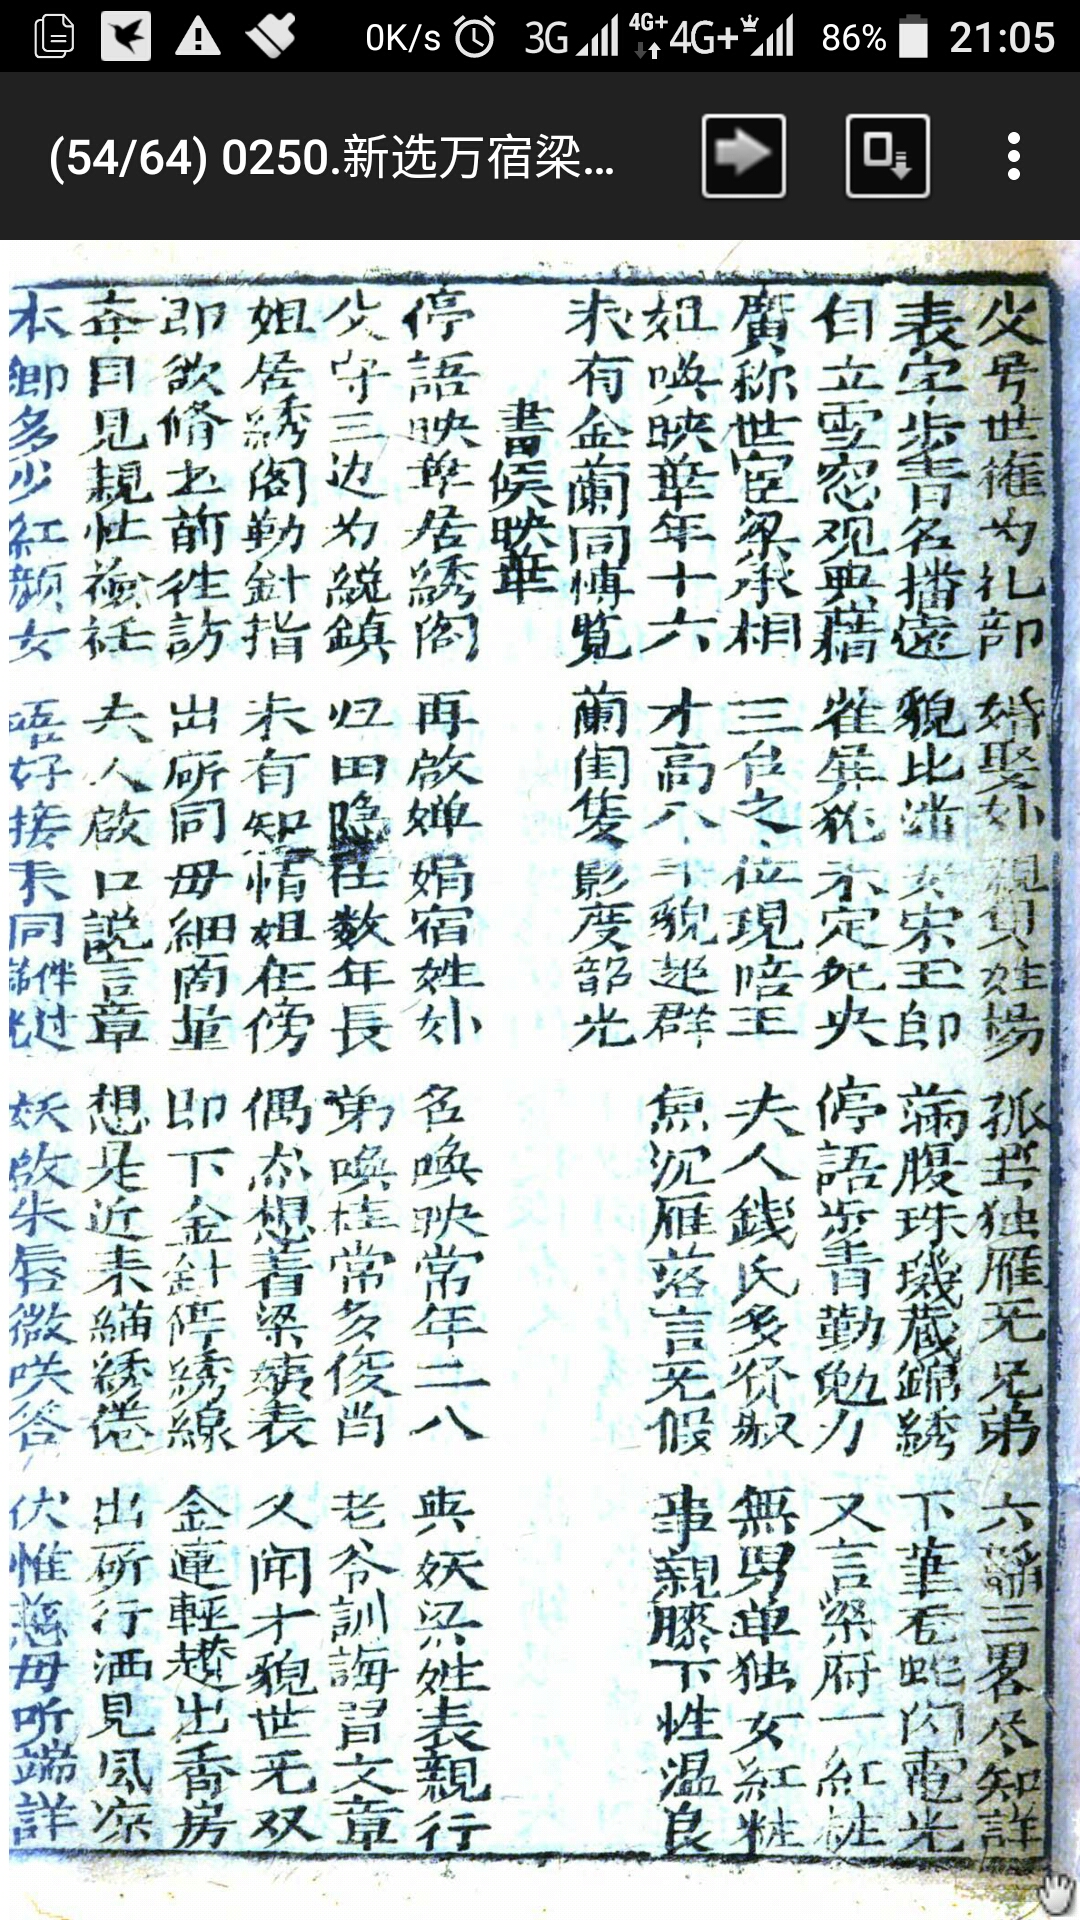 0K/s 3G 4G+ 4G+ 86% 21:05
(54/64) 0250.新选万宿梁...
父号世權为礼部 婚娶外親貝姓楊 孤㞢独雁无兄弟 六韜三畧尽知詳
表字步青名播遠 貌比潘安宋玉郎 滿腹珠璣藏錦綉 下筆看蛇閃電光
自立雪窓观典藉 雀屏犹未定夗央 停語步青勤勉力 又言梁府一紅粧
廣称世宦梁承相 三台之位現陪王 夫人錢氏多 無男单独女紅粧
姐喚映華年十六 才高八斗貌超群 魚沉雁落言无假 事親膝下性温良
未有金蘭同愽覧 蘭闺隻影度韶光
書侯映華
停語映華居綉阁 再啟婵娟宿姓外 名喚映常年二八 與妖梁姓表親行
父守三边为総鎮 归田隐在数年長 弟喚桂常多俊尚 老爷訓誨習文章
姐居綉阁勤針指 未有知情姐在傍 偶尔想着梁姨表 又闻才貌世无双
即欲脩书前徃訪 出所同毋細商量 即下金針停綉線 金蓮輕趲出香房
奔目見親性裣衽 夫人啟口説言章 想是近来綉倦 出所行洒見风凉
本卿多少紅颜女 唔好接来同伴过 妖啟朱唇微咲答 伏惟慈毋听端詳